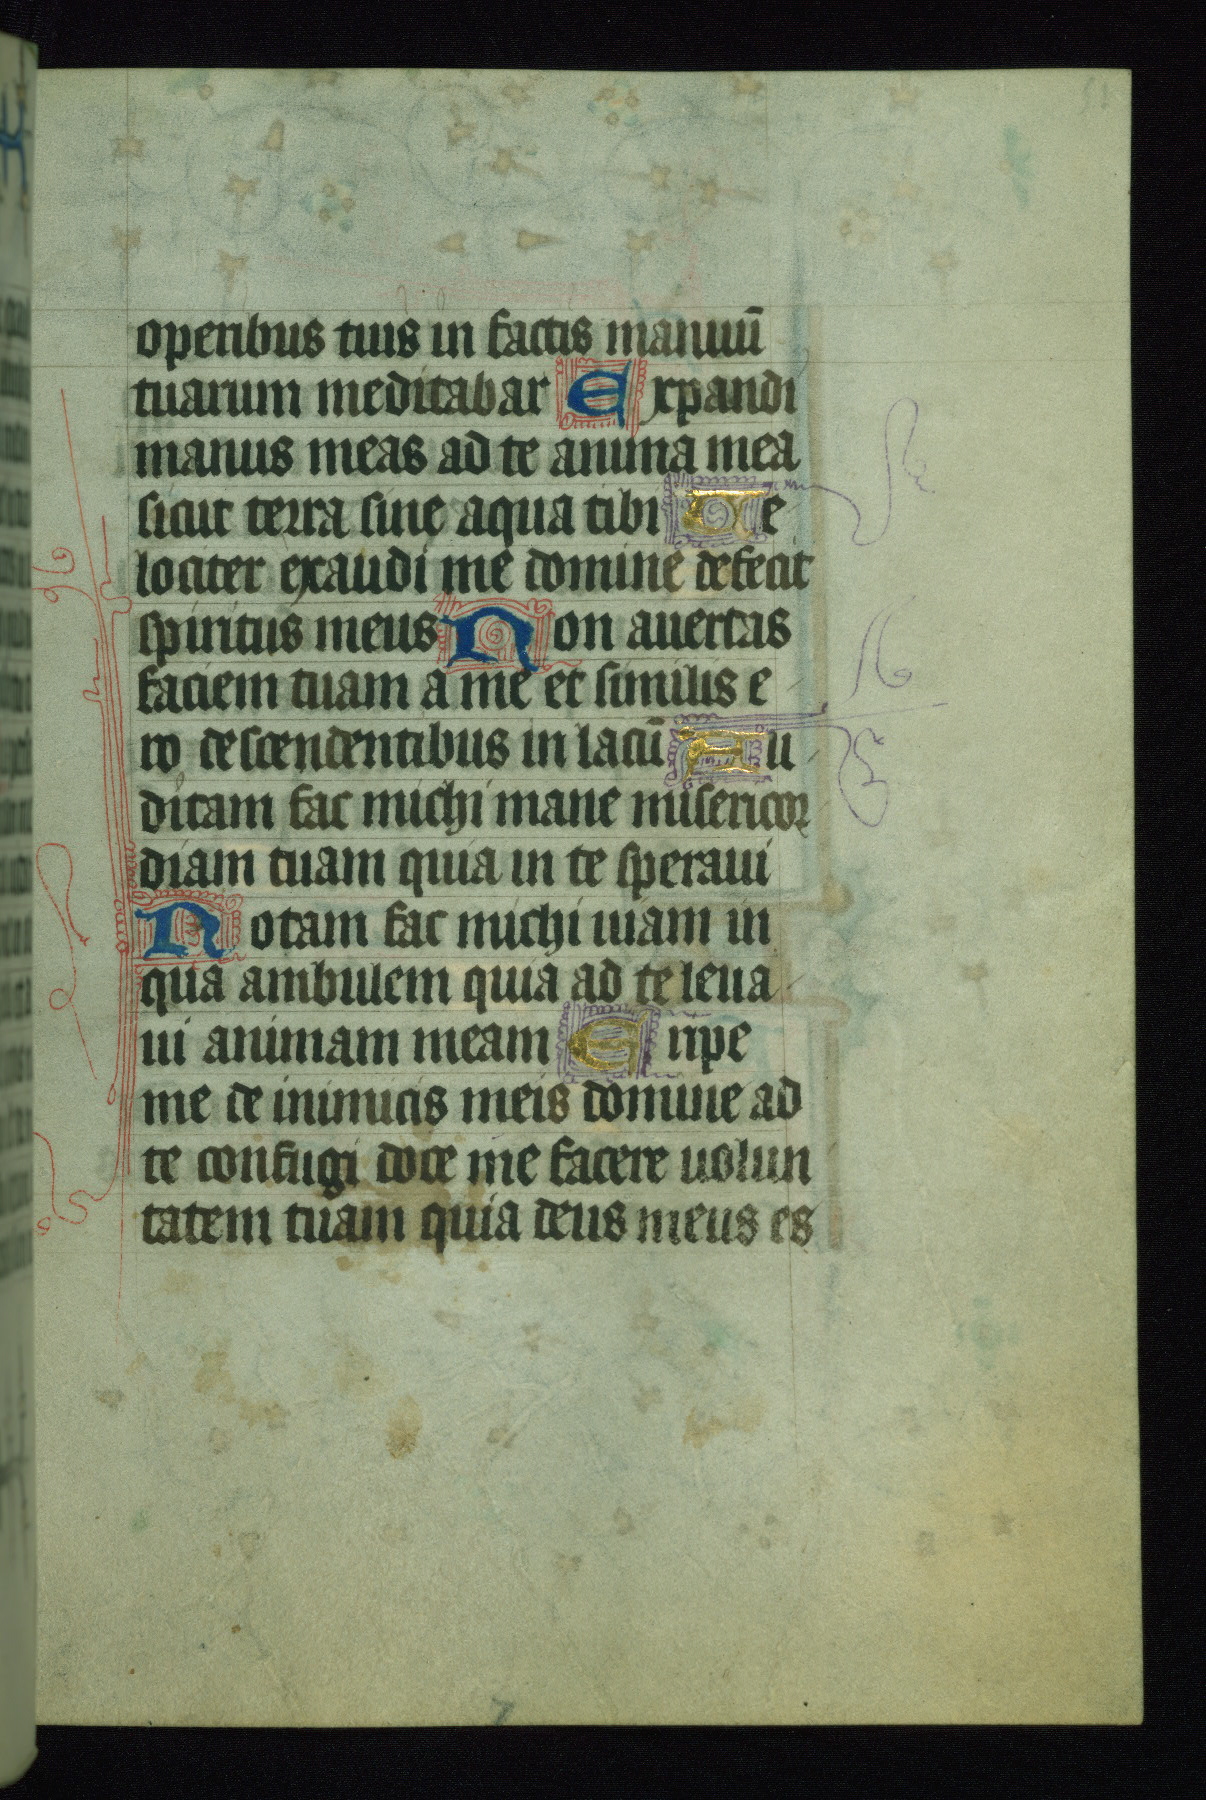 operibus tuis in factis manuū
tuarum meditabar Expandi
manus meas ad te anima mea
sicut terra sine aqua tibi Ve
lociter exaudi me domine defecit
spiritus meus Non auertas
faciem tuam a me et similis e
ro descendentibus in lacū Au
ditam fac michi mane misericor
diam tuam quia in te speraui
Notam fac michi uiam in
qua ambulem quia ad te leua
ui animam meam Eripe
me de inimicis meis domine ad
te confugi doce me facere uolun
tatem tuam quia deus meus es